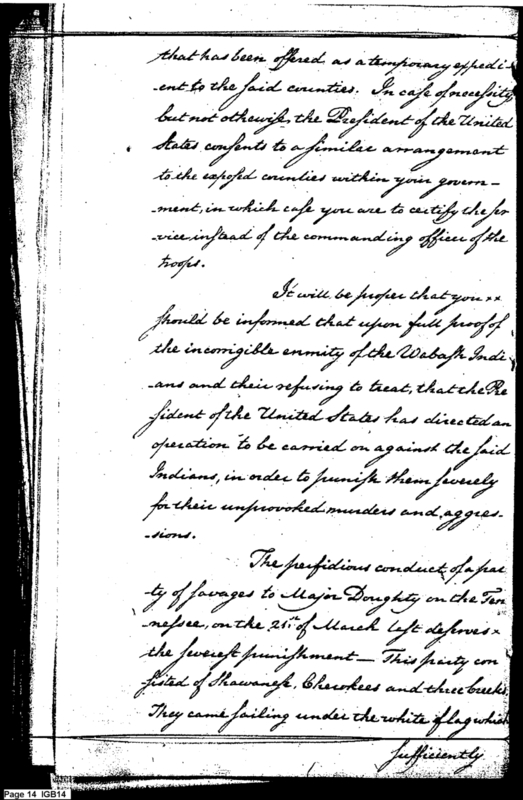 that has been offered as a temporary expedi-
-ent to the said counties. In case of necessity
but not otherwise, the President of the United
States consents to a similar arrangement
to the exposed counties within your govern-
-ment, in which case you are to certify the ser
vice, instead of the commanding officer of the
troops.
It will be proper that you xx
should be informed that upon full proof of
the incorrigible enmity of the Wabash Indi
-ans and their refusing to treat, that the Pre
sident of the United States has directed an
operation to be carried on against the said
Indians, in order to punish them severely
for their unprovoked murders and aggres-
-sions.
The perfidious conduct of a par
ty of savages to Major Doughty on the Ten
nessee, on the 21st. of March last deserves x
the severest punishment — This party con
sisted of Shawanese, Cherokees and three Creeks.
They came sailing under the white flag which
sufficiently
Page 14 IGB14